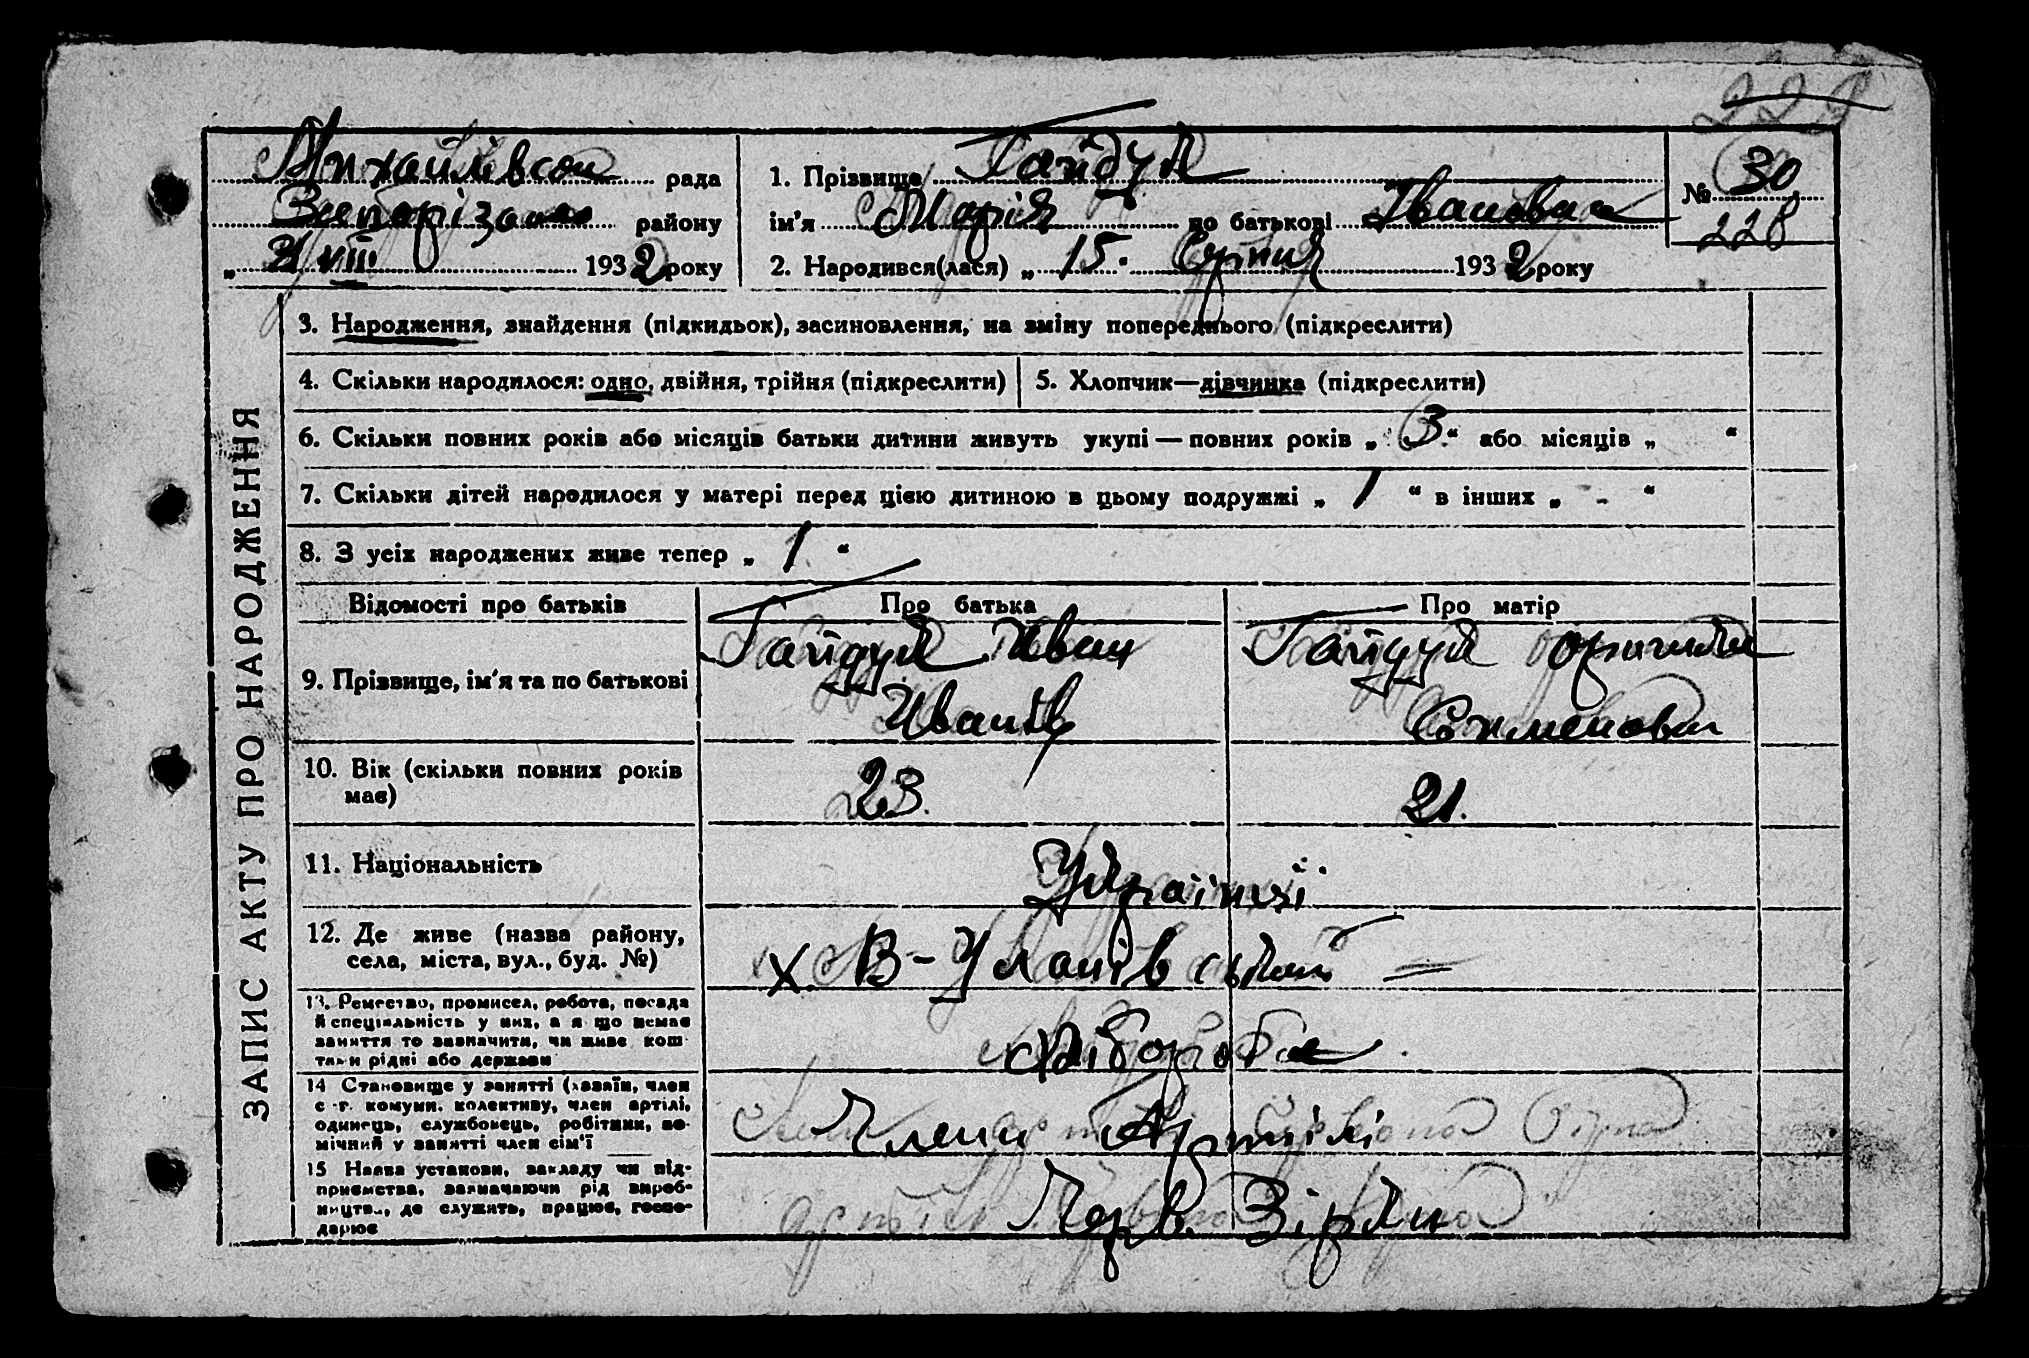 222
Михайлівська рада
Запорізького району
„ VIII 1932 року
1. Прізвище Гайдук
ім'я Марія по батькові Іванівна
2. Народився(лася) „ 15. Серпня 1932 року
№ 30
228
ЗАПИС АКТУ ПРО НАРОДЖЕННЯ
3. Народження, знайдення (підкидьок), засиновлення, на зміну попереднього (підкреслити)
4. Скільки народилося: одно, двійня, трійня (підкреслити)
5. Хлопчик—дівчинка (підкреслити)
6. Скільки повних років або місяців батьки дитини живуть укупі — повних років „ 3 “ або місяців „ “
7. Скільки дітей народилося у матері перед цією дитиною в цьому подружжі „ 1 “ в інших „ - “
8. З усіх народжених живе тепер „ 1 “
Відомості про батьків
Про батька
Про матір
9. Прізвище, ім'я та по батькові
Гайдук Иван
Иванів
Гайдук
Семеновна
10. Вік (скільки повних років
має)
23.
21.
11. Національність
Українці
12. Де живе (назва району,
села, міста, вул., буд. №)
х. В-Уланівський
13. Ремество, промисел, робота, посада
й спеціяльність у них, а я що немає
заняття то зазначити, чи живе кош
тами рідні або держави
хлібороби
14 Становище у занятті (хазяїн, член
с.-г. комуни, колективу, член артілі,
одинець, службовець, робітник, по-
мічний у занятті член сім'ї
Члени Артілі
15 Назва установи, закладу чи під-
приємства, зазначаючи рід вироб-
ництва, де служить, працює, госпо-
дарює
Черв. Зірки